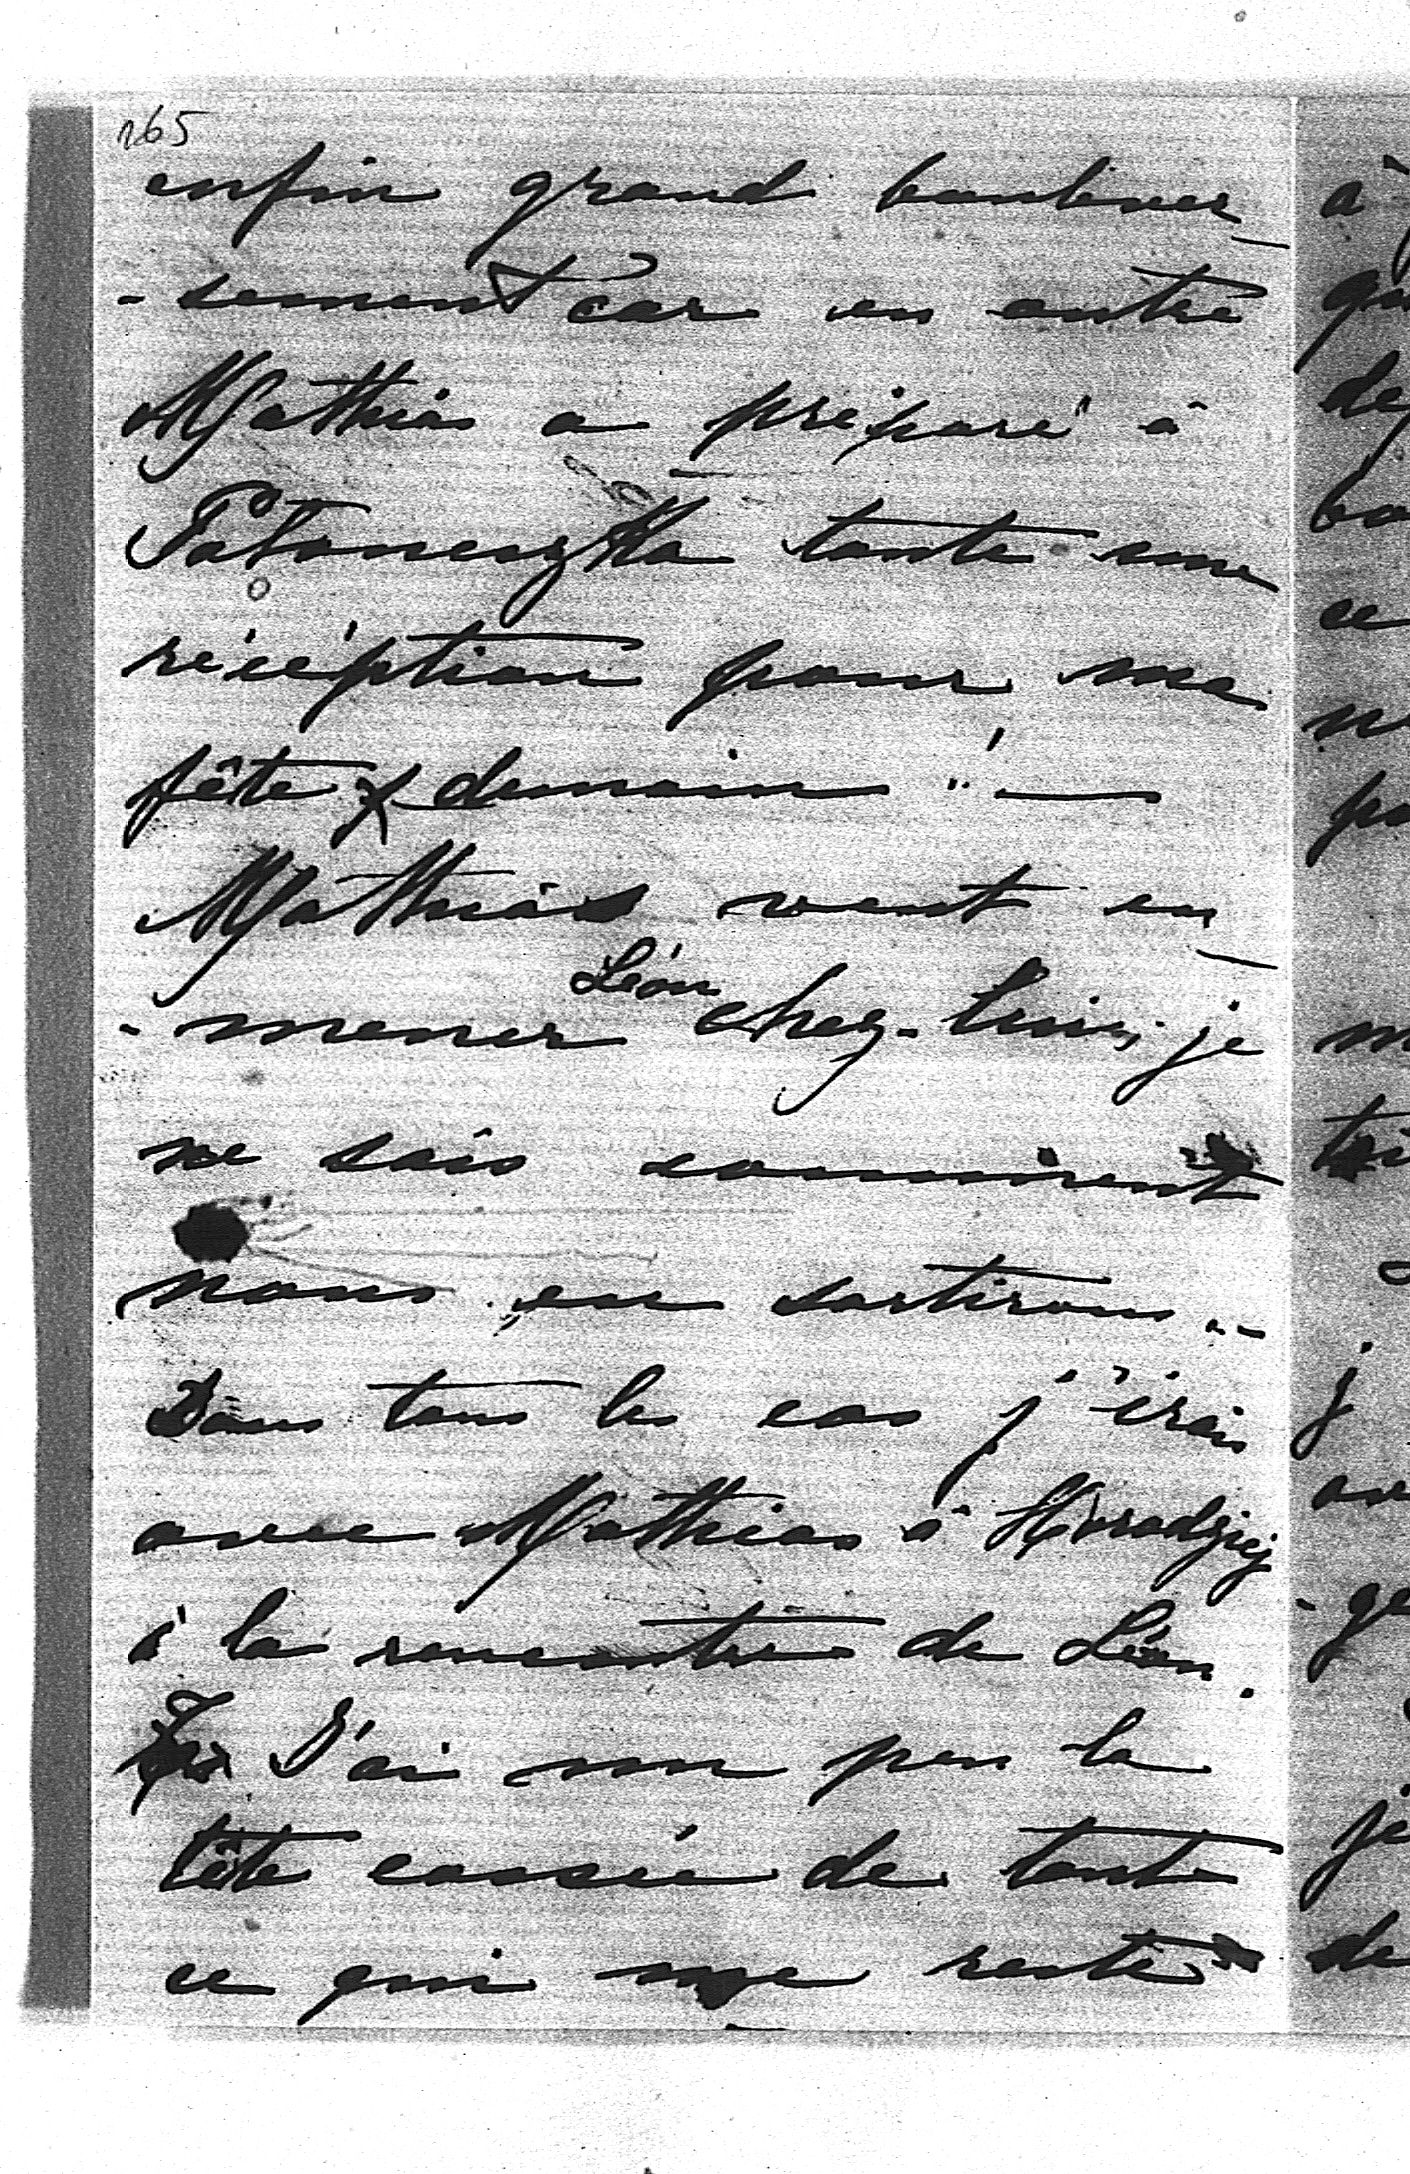 265
enfin grand boulever-
-sement car en outre
Mathias a préparé à
toute une
réception pour ma
fête demain !—
Mathias veut em-
-mener Léon chez-lui, je
ne sais comment
nous en sortirons..
Dans tous les cas j'irai
avec Mathias à Horodziej
à la rencontre de Léon.
J'ai un peu la
tête cassée de tout
ce qui me reste